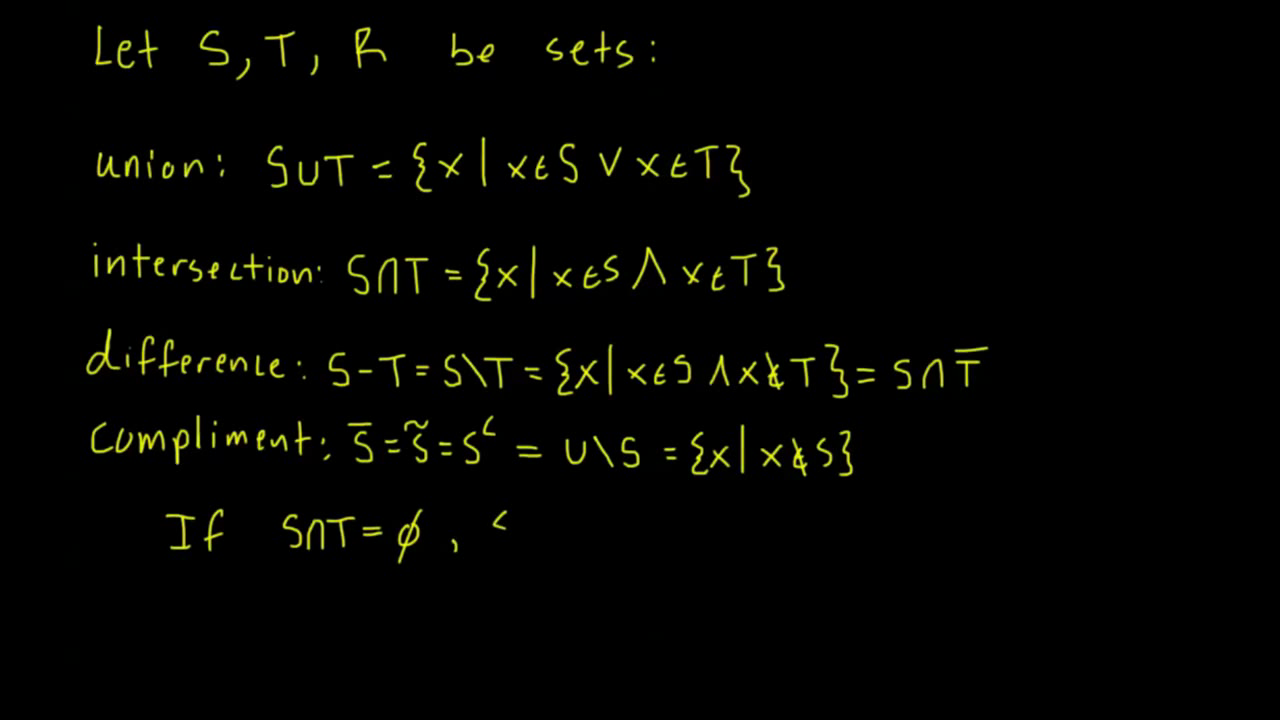 Let S, T, R be sets:
union: S∪T = {x | x∈S ∨ x∈T}
intersection: S∩T = {x | x∈S ∧ x∈T}
difference: S-T = S\T = {x | x∈S ∧ x∉T} = S∩T̅
compliment: S̅ = S̃ = Sᶜ = U\S = {x | x∉S}
If S∩T = ∅,